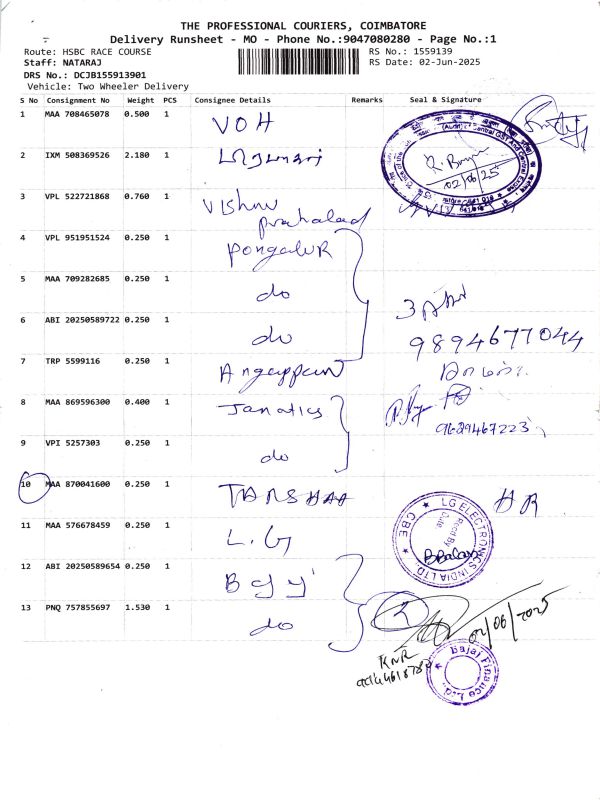 THE PROFESSIONAL COURIERS, COIMBATORE
Delivery Runsheet - MO - Phone No.:9047080280 - Page No.:1
Route: HSBC RACE COURSE
RS No.: 1559139
Staff: NATARAJ
RS Date: 02-Jun-2025
DRS No.: DCJB155913901
Vehicle: Two Wheeler Delivery
S No Consignment No Weight PCS Consignee Details Remarks Seal & Signature
1 MAA 708465078 0.500 1 VOH
02/06/25
2 IXM 508369526 2.180 1
3 VPL 522721868 0.760 1 Vishnu
prahalad
4 VPL 951951524 0.250 1 PongaluR
5 MAA 709282685 0.250 1 do
6 ABI 20250589722 0.250 1 do
9894677044
7 TRP 5599116 0.250 1 Angappan
8 MAA 869596300 0.400 1 Janatics
9629467223
9 VPI 5257303 0.250 1 do
10 MAA 870041600 0.250 1 HR
11 MAA 576678459 0.250 1 L.G
LG ELECTRONICS INDIA LTD. CBE
Recd By
Date
12 ABI 20250589654 0.250 1
13 PNQ 757855697 1.530 1 do
02/06/2025
KNR
Bajaj Finance Ltd.